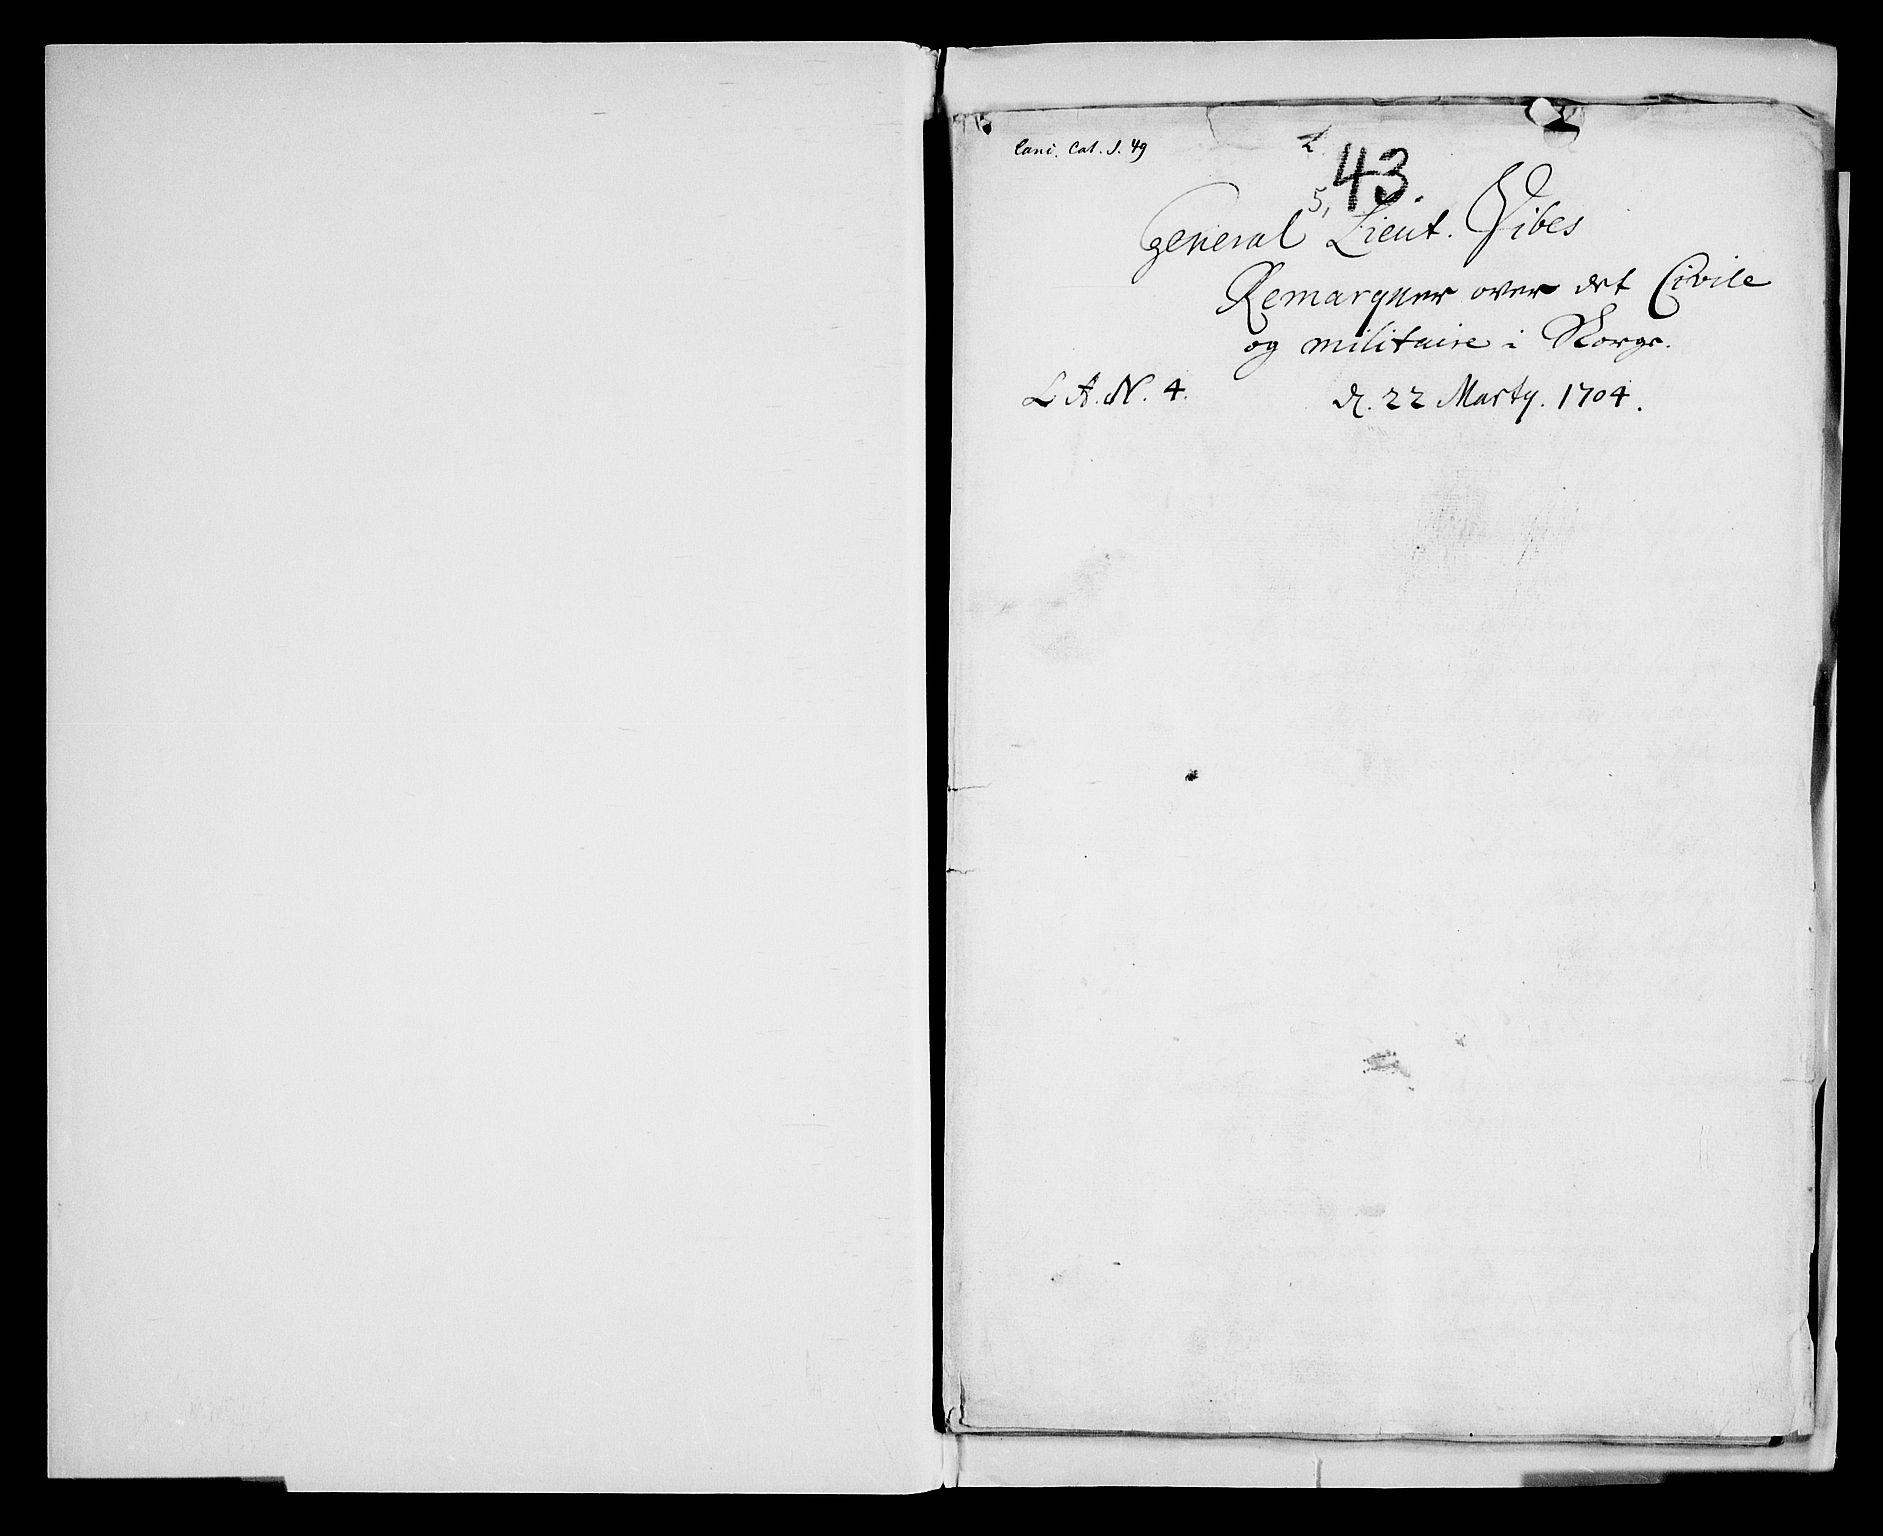 Canc. Cat. S. 49
43.
5,
General Lieut. Vibes
Remarqver over det Civile
og militaire i Norge.
L A. N. 4.
d. 22 Marty. 1704.